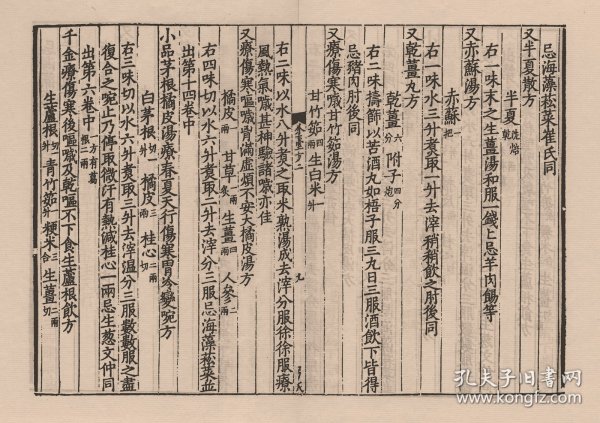 忌海藻菘菜崔氏同
又半夏散方
半夏洗焙乾
右一味末之生薑湯和服一錢匕忌羊肉餳等
又赤蘇湯方
赤蘇一把
右一味水三升煮取一升去滓稍稍飲之肘後同
又乾薑丸方
乾薑六分 附子四分炮
右二味擣篩以苦酒丸如梧子服三丸日三服酒飲下皆得
忌豬肉肘後同
又療傷寒噦甘竹茹湯方
甘竹茹四兩 生白米一升
右二味以水八升煮之取米熟湯成去滓分服徐徐服療
風熱氣噦甚神驗諸噦亦佳
又療傷寒嘔噦胃滿虛煩不安大橘皮湯方
橘皮一兩 甘草一兩炙 生薑四兩 人參二兩
右四味切以水六升煮取二升去滓分三服忌海藻菘菜並
出第十四卷中
小品茅根橘皮湯療春夏天行傷寒胃冷變啘方
白茅根切一升 橘皮三兩 桂心二兩切
右三味切以水六升煮取三升去滓溫分三服數數服之盡
復合之啘止乃傳取微汗有熱減桂心一兩忌生葱文仲同
出第六卷中 一方有葛根二兩
千金療傷寒後嘔噦及乾嘔不下食生蘆根飲方
生蘆根切一升 青竹茹一升 粳米三合 生薑二兩切
孔夫子旧书网
www.kongfz.com